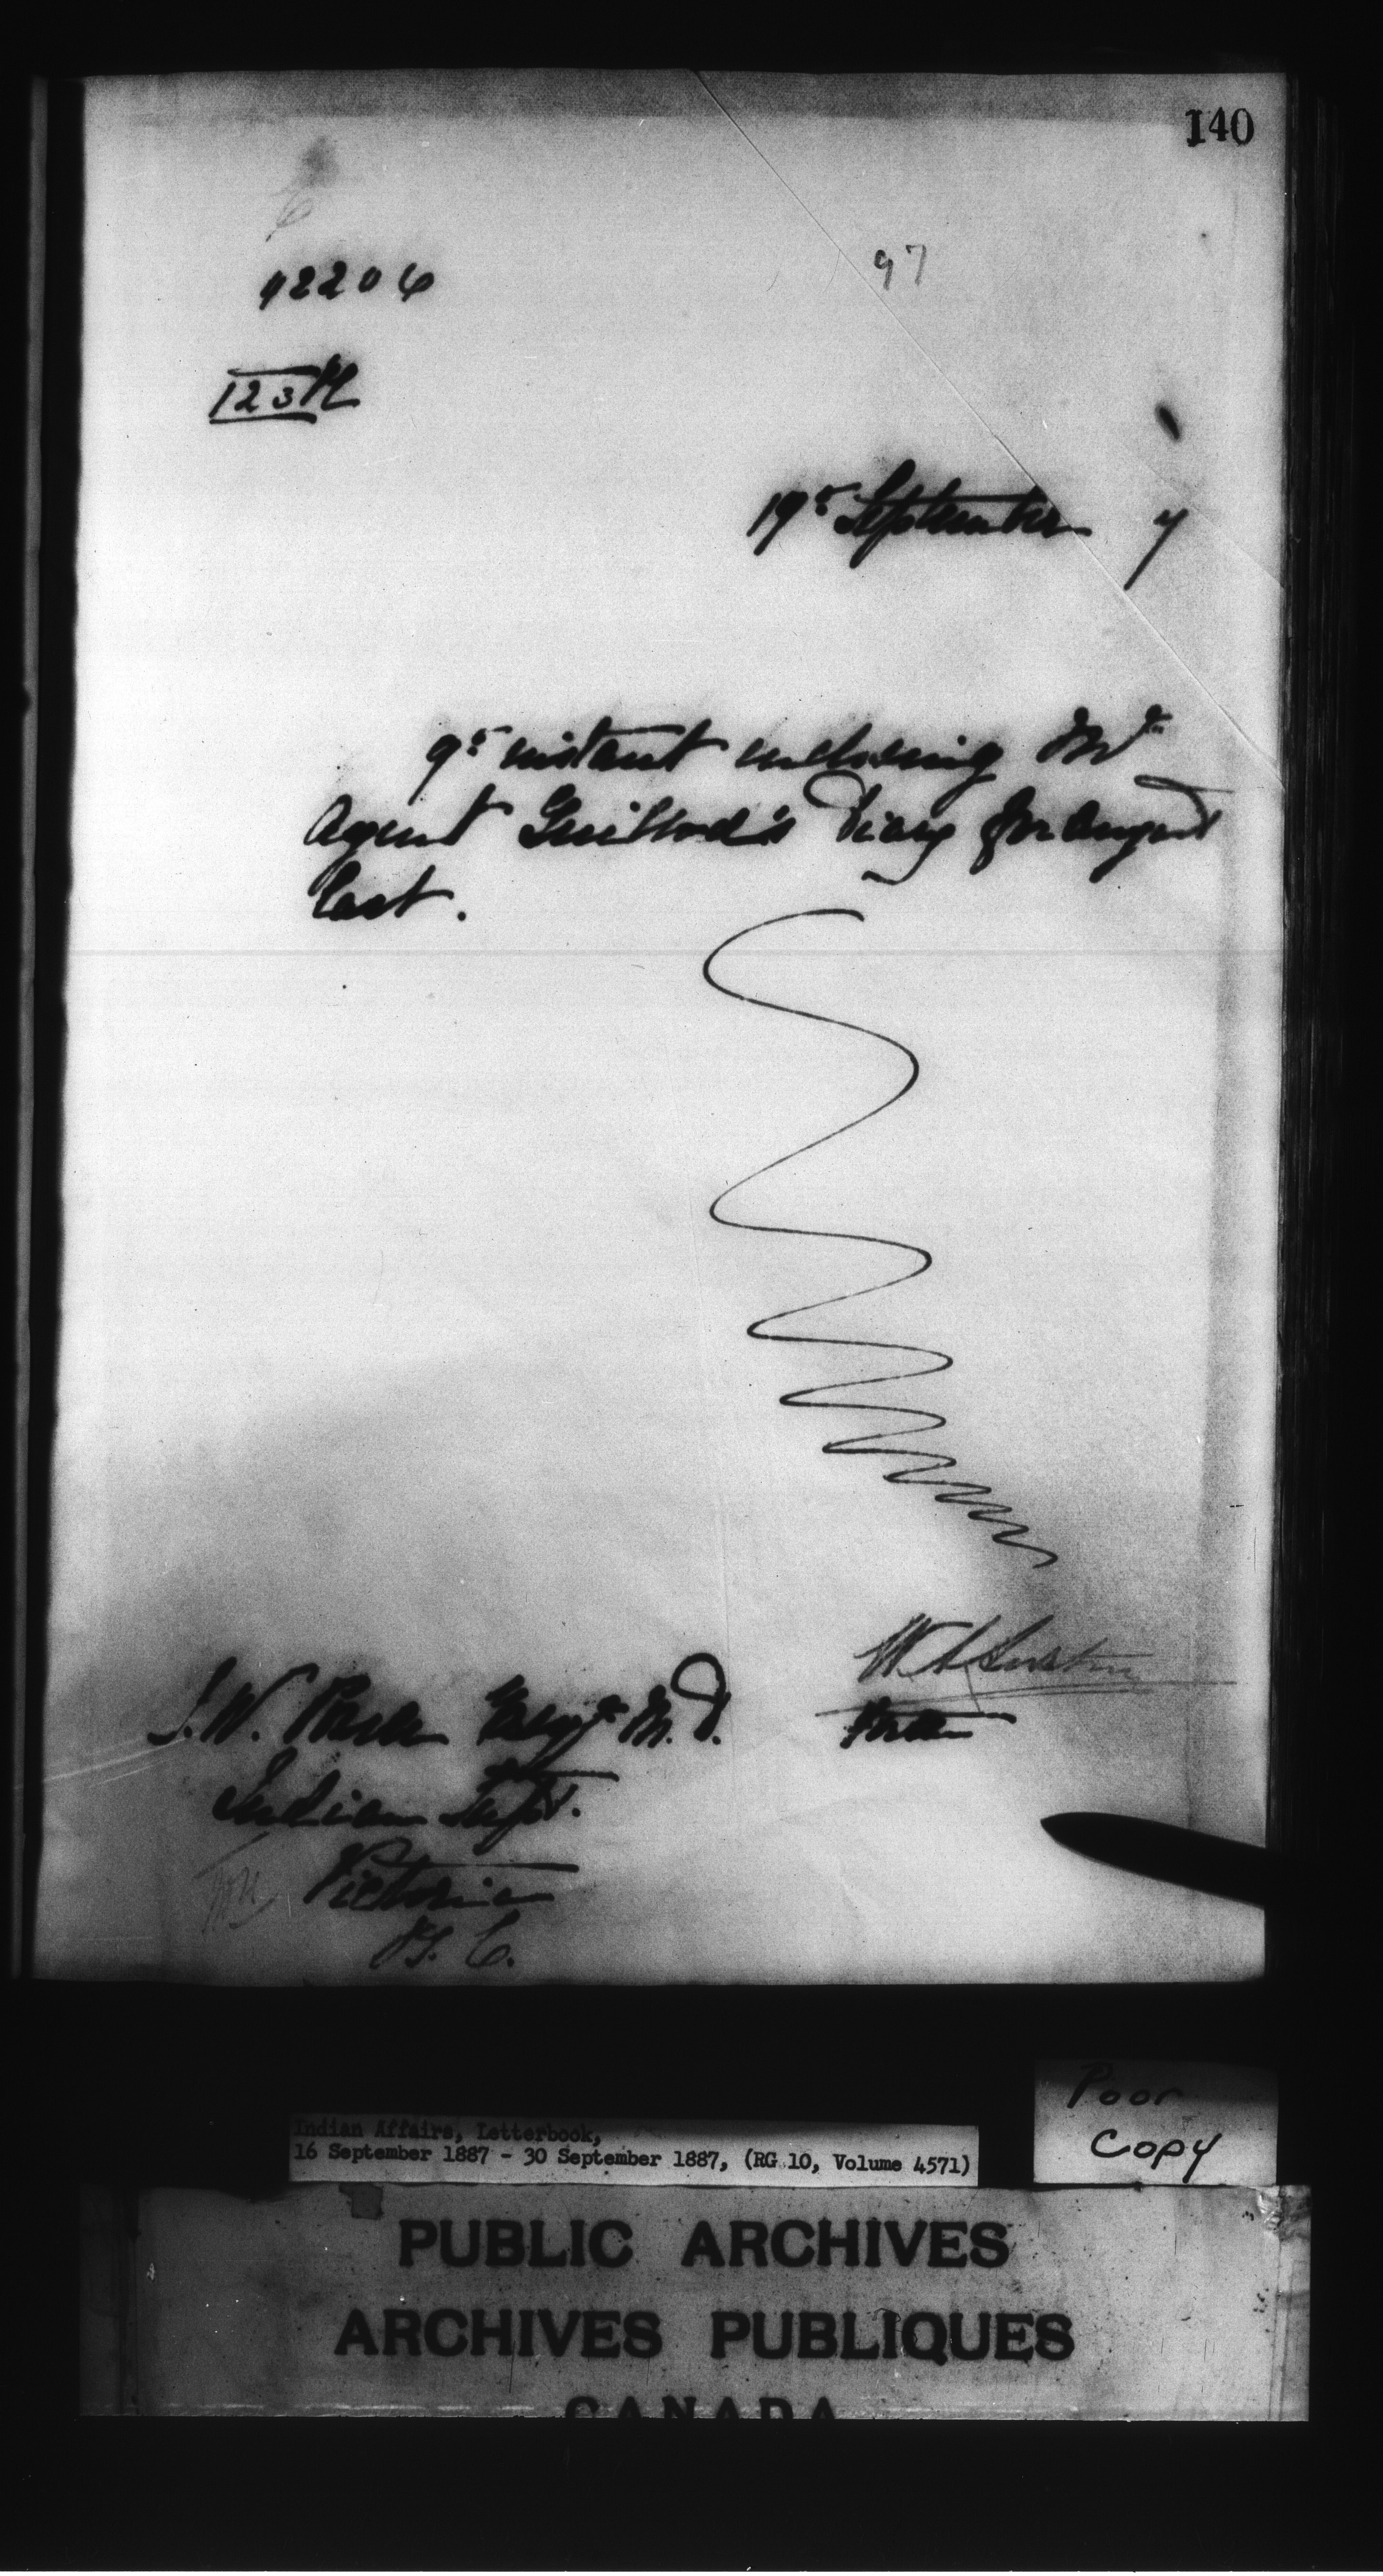 140
97
42206
123
19th September 7
9th instant enclosing Mr
Agent Guillod's Diary for August
last.
I.W. Powell Esqre M.D.
Indian Supt.
Victoria
B.C.
Poor
Copy
Indian Affairs, Letterbook,
16 September 1887 - 30 September 1887, (RG 10, Volume 4571)
PUBLIC ARCHIVES
ARCHIVES PUBLIQUES
CANADA